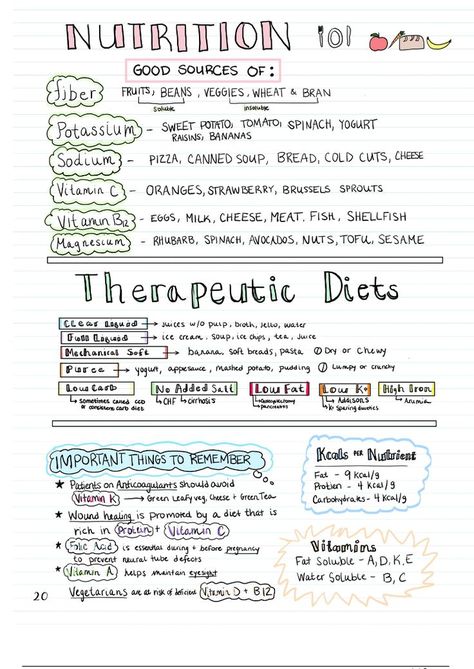 NUTRITION 101
GOOD SOURCES OF:
fiber FRUITS, BEANS, VEGGIES, WHEAT & BRAN
soluble insoluble
Potassium - SWEET POTATO, TOMATO, SPINACH, YOGURT
RAISINS, BANANAS
Sodium - PIZZA, CANNED SOUP, BREAD, COLD CUTS, CHEESE
Vitamin C - ORANGES, STRAWBERRY, BRUSSELS SPROUTS
Vitamin B12 - EGGS, MILK, CHEESE, MEAT, FISH, SHELLFISH
Magnesium - RHUBARB, SPINACH, AVOCADOS, NUTS, TOFU, SESAME
Therapeutic Diets
Clear Liquid → juices w/o pulp, broth, Jello, water
Full Liquid → ice cream, soup, ice chips, tea, juice
Mechanical Soft → banana, soft breads, pasta Dry or Chewy
Puree → yogurt, applesauce, mashed potato, pudding Lumpy or crunchy
Low Carb No Added Salt Low Fat Low K+ High Iron
↳ sometimes called CCD
or consistent carb diet
↳ CHF ↳ cirrhosis
Pancreatitis
↳ Addisons
K+ Sparing diuretics
↳ Anemia
IMPORTANT THINGS TO REMEMBER
★ Patients on Anticoagulants should avoid
Vitamin K → Green Leafy veg, Cheese + Green Tea
★ Wound healing is promoted by a diet that is
rich in Protein + Vitamin C
★ Folic Acid is essential during + before pregnancy
to prevent neural tube defects
★ Vitamin A helps maintain eyesight
Vegetarians are at risk of deficient Vitamin D + B12
Kcals PER Nutrient
Fat - 9 Kcal/g
Protien - 4 Kcal/g
Carbohydrates - 4 Kcal/g
Vitamins
Fat Soluble - A, D, K, E
Water Soluble - B, C
20